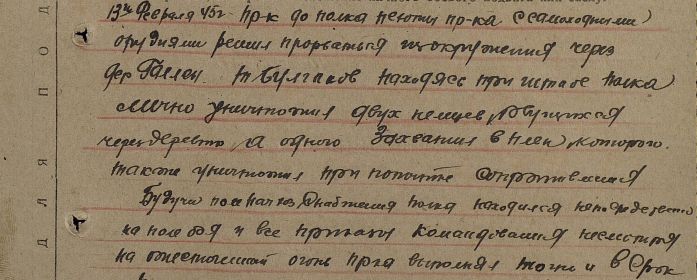 13го Февраля 45г пр-к до полка пехоты пр-ка с самоходными
орудиями решил прорваться из окружения через
дер Гален. т Булгаков находясь при штабе полка
лично уничтожил двух немцев, рвущихся
через деревню, а одного захватил в плен, которого
также уничтожил при попытке сопротивления
Будучи пом нач снабжения полка находился непосредственно
на поле боя и все приказы командования несмотря
на ожесточенный огонь пр-ка выполнял точно и в срок
ДЛЯ ПОД